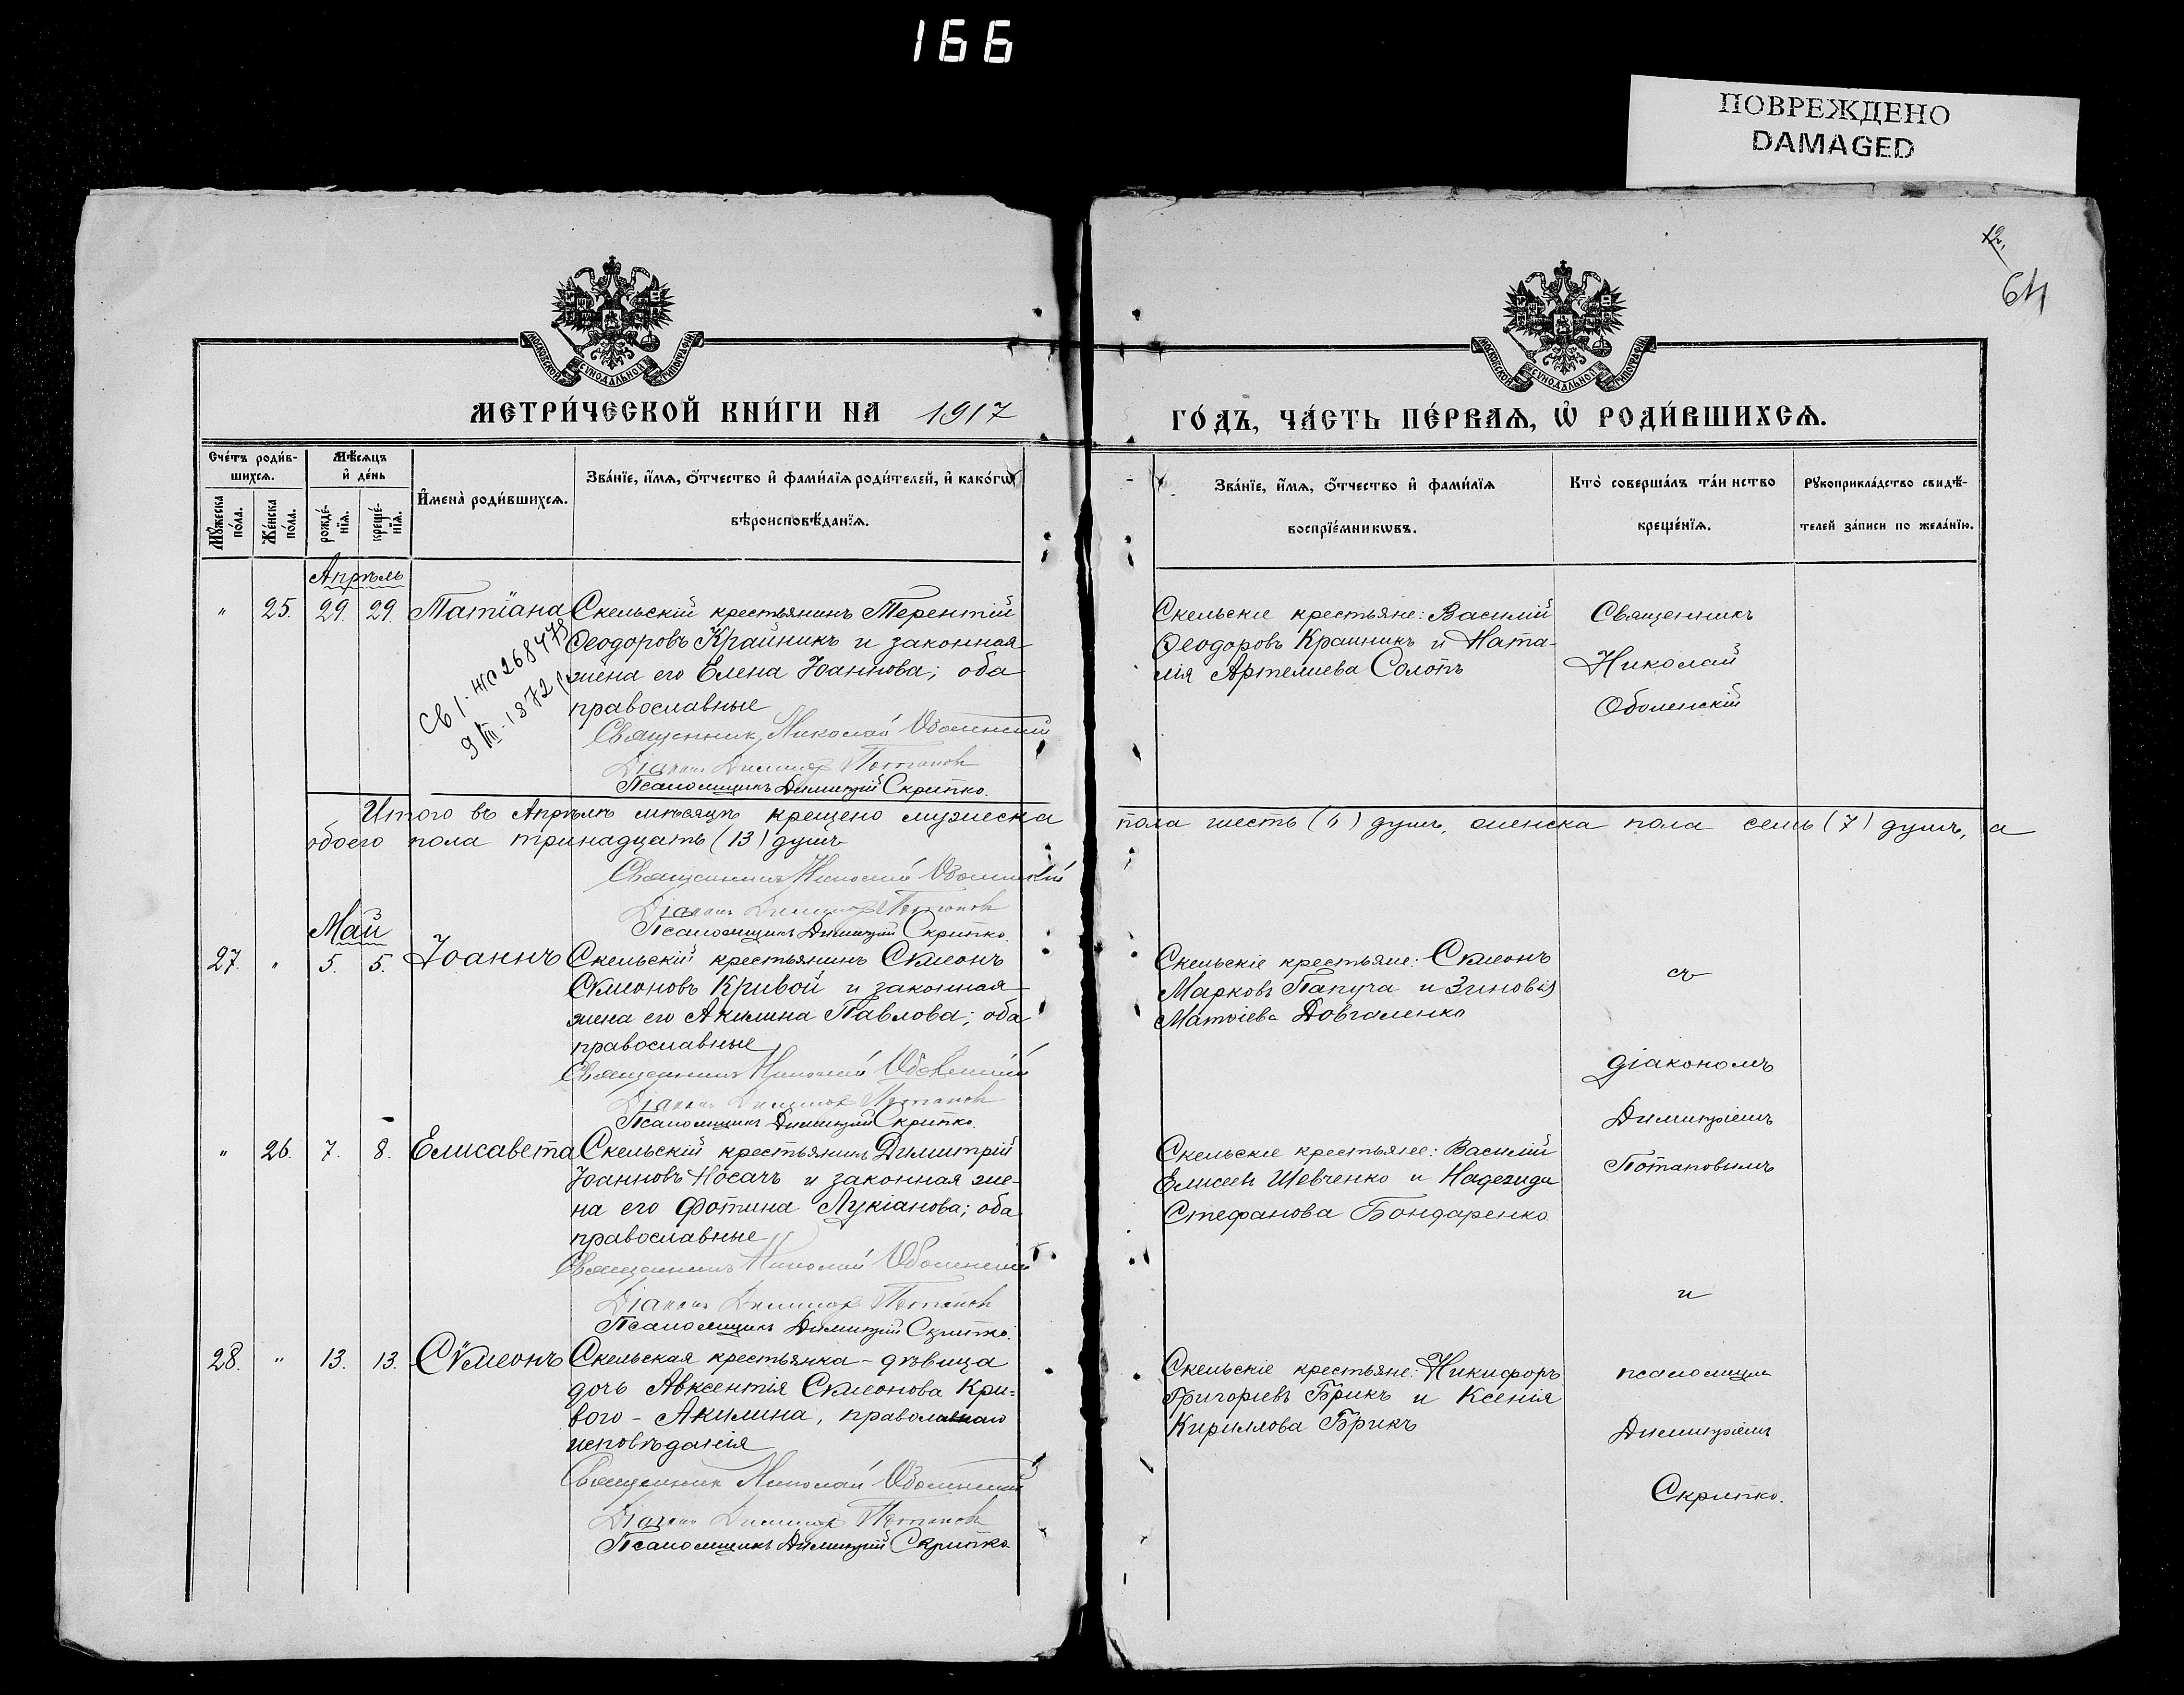 166
ПОВРЕЖДЕНО
DAMAGED
12.
64
МОСКОВСКОЙ СѴНОДАЛЬНОЙ ТИПОГРАФІИ
МОСКОВСКОЙ СѴНОДАЛЬНОЙ ТИПОГРАФІИ
МЕТРИ́ЧЕСКОЙ КНИ́ГИ НА 1917
ГО́ДЪ, ЧА́СТЬ ПЕ́РВАѦ, Ѡ҆ РОДИ́ВШИХСѦ.
Сче́тъ роди́в-
шихсѧ.
Мꙋ́жеска по́ла.
Же́нска по́ла.
Мѣ́сѧцъ
и҆ де́нь
рожде́-
нїѧ.
креще́-
нїѧ.
И҆мена̀ роди́вшихсѧ.
Зва́нїе, и҆́мѧ, ѻ҆́тчество и҆ фами́лїѧ роди́телей, и҆ како́гѡ
вѣроисповѣ́данїѧ.
Зва́нїе, и҆́мѧ, ѻ҆́тчество и҆ фами́лїѧ
воспрїе́мникѡвъ.
Кто̀ соверша́лъ та́инство
креще́нїѧ.
Рꙋкоприкла́дство свидѣ́-
телей за́писи по жела́нїю.
Апрѣль
" 25. 29. 29. Татіана Скельскій крестьянинъ Терентій
Ѳеодоровъ Крайникъ и законная
жена его Елена Іоаннова; оба
православные
Св I. ЖС 268478
9 VIII. 1872
Священник Николай Оболенский
Діаконъ Димитрій Потапов
Псаломщикъ Димитрій Скрипко.
Скельскіе крестьяне: Василій
Ѳеодоровъ Крайникъ и Ната-
лія Артемиева Солопъ
Священникъ
Николай
Оболенскій
Итого въ Апрѣлѣ мѣсяцѣ крещено мужеска пола шесть (6) душъ, женска пола семь (7) душъ, а
обоего пола тринадцать (13) душъ
Священникъ Николай Оболенскій
Діаконъ Димитрій Потапов
Псаломщикъ Димитрій Скрипко.
Май
27. " 5. 5. Іоаннъ Скельскій крестьянинъ Сѵмеонъ
Сѵмеоновъ Кривой и законная
жена его Акилина Павлова; оба
православные
Священникъ Николай Оболенскій
Діаконъ Димитрій Потапов
Псаломщикъ Димитрій Скрипко.
Скельскіе крестьяне: Сѵмеонъ
Марковъ Папуча и Зиновія
Матѳіева Довгаленко
съ
діакономъ
Димитріемъ
Потаповымъ
" 26. 7. 8. Елисавета Скельскій крестьянинъ Димитрій
Іоанновъ Носачъ и законная же-
на его Фотина Лукіанова; оба
православные
Священникъ Николай Оболенскій
Діаконъ Димитрій Потапов
Псаломщикъ Димитрій Скрипко.
Скельскіе крестьяне: Василій
Елисеевъ Шевченко и Надежда
Стефанова Бондаренко
и
28. " 13. 13. Сѵмеонъ Скельская крестьянка - дѣвица
дочь Авксентія Сѵмеонова Кри=
вого - Акилина, православнаго
исповѣданія
Священник Николай Оболенский
Діаконъ Димитрій Потапов
Псаломщикъ Димитрій Скрипко
Скельскіе крестьяне: Никифоръ
Григорьевъ Брикъ и Ксенія
Кириллова Брикъ
псаломщик
Димитріемъ
Скрипко.